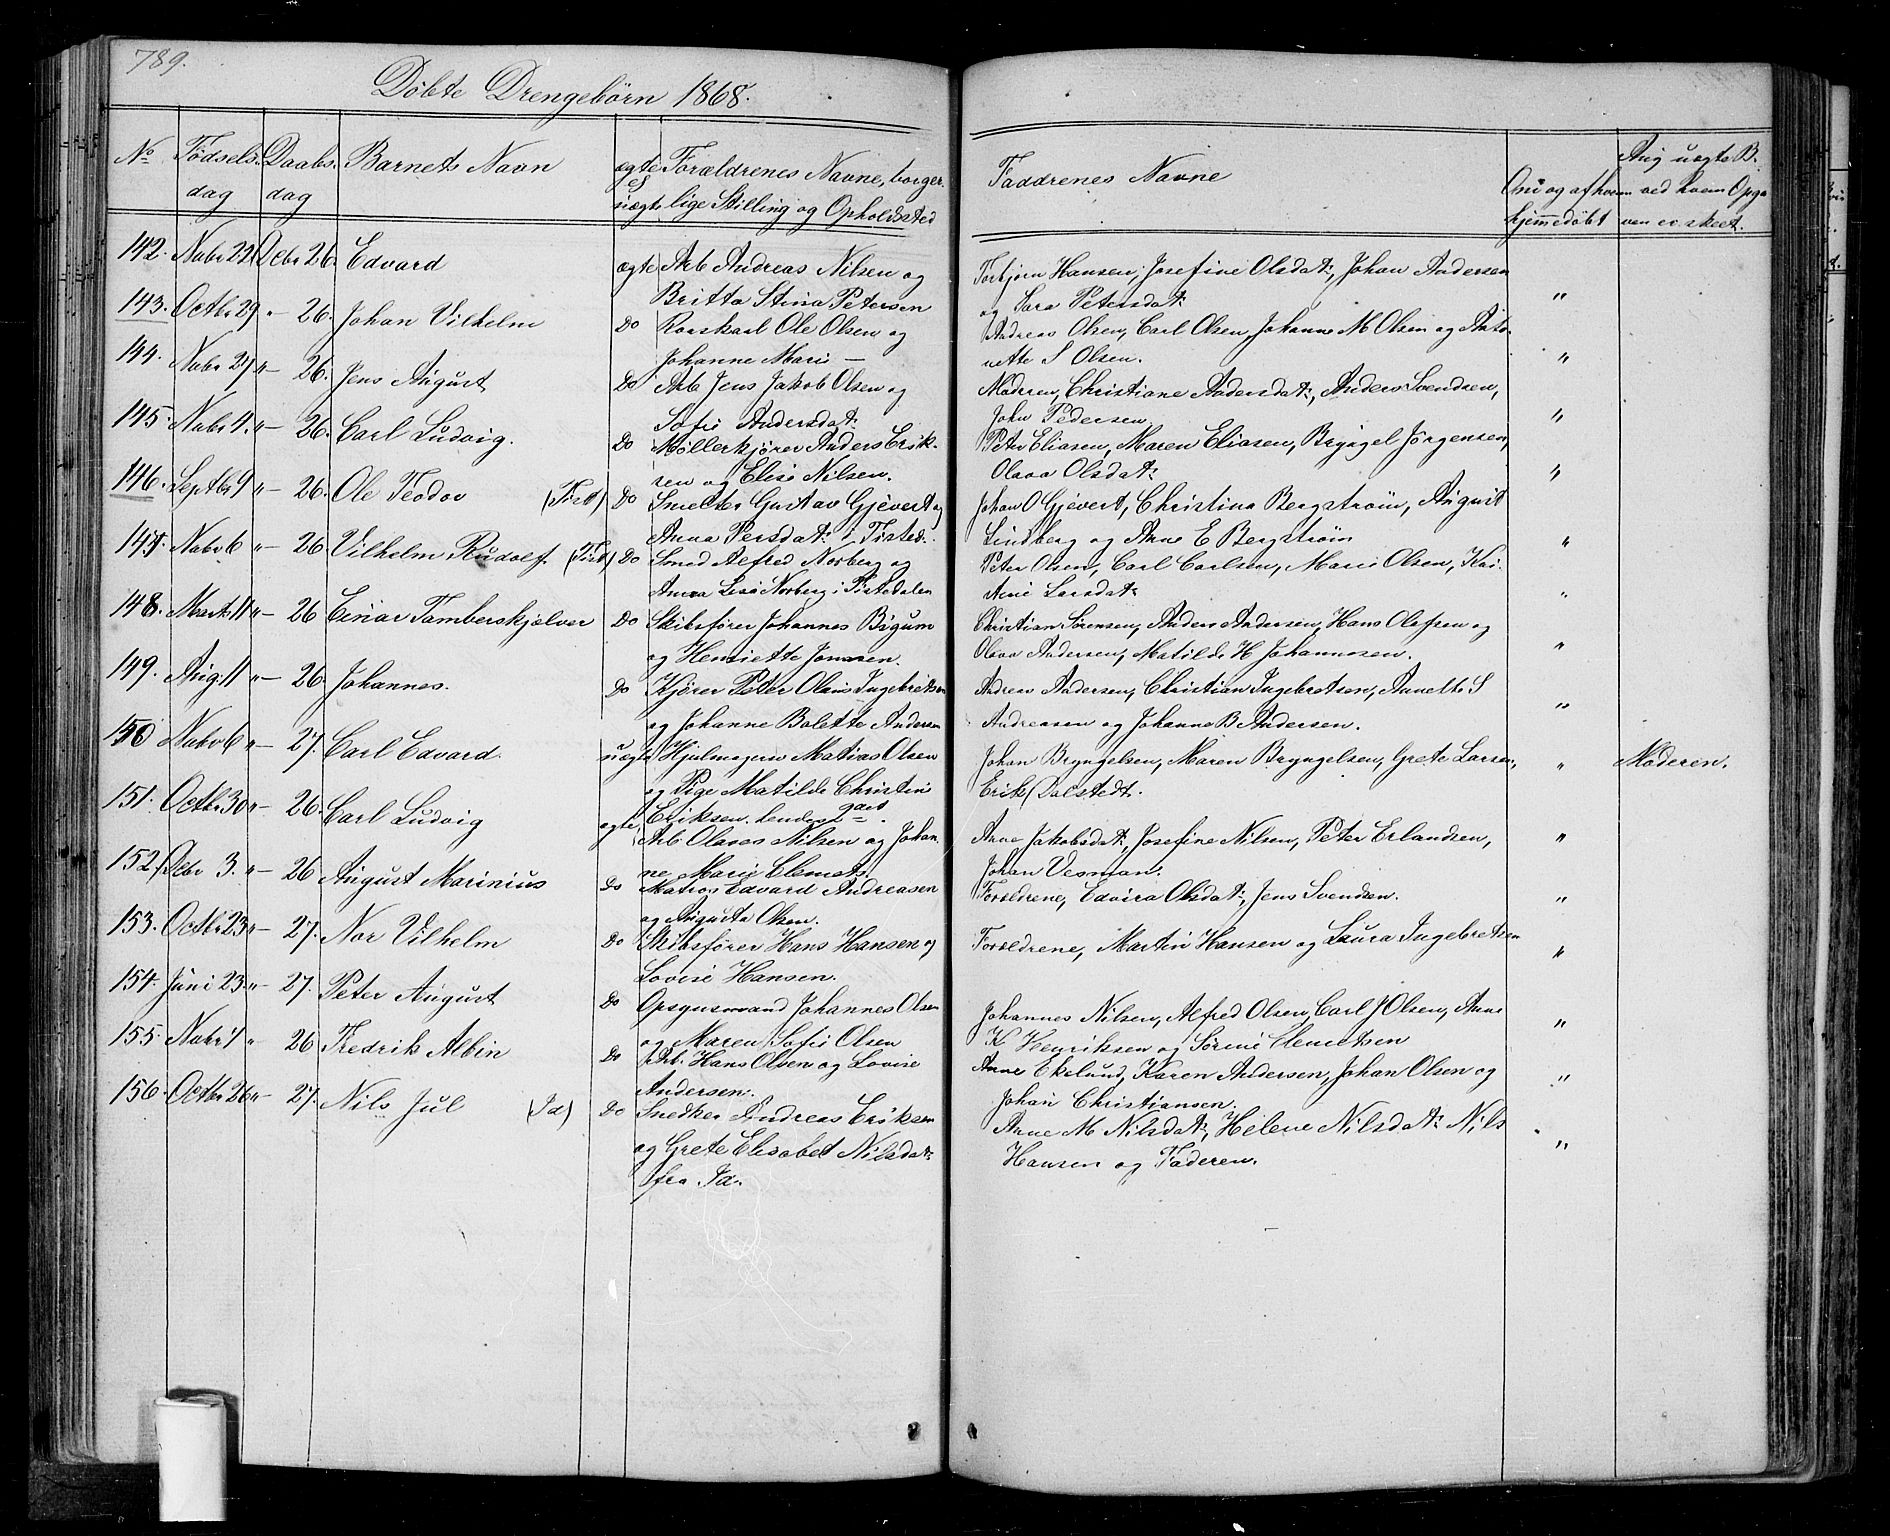 789.
Döbte Drengebörn 1868.
No Födsels dag Daabs dag Barnets Navn ægte el uægte Forældrenes Navne, borger-
lige Stilling og Opholdssted
Faddrenes Navne
Om og af hvem hjemmedöbt
Ang uægte B. ved hvem Opga
ven er skeet.
142. Nobr 22 Decbr 26. Edvard ægte Arb Andreas Nilsen og
Britta Stina Petersen
Torbjörn Hansen, Josefine Olsdat:, Johan Andersen
og Sara Petersdat: "
143. Octbr 29 " - 26. Johan Vilhelm Do Rorskarl Ole Olsen og
Johanne Marie —
Andreas Olsen, Carl Olsen, Johanne M Olsen og Anto-
nette S Olsen. "
144. Nobr 27 " - 26. Jens August Do Arb Jens Jakob Olsen og
Sofie Andersdat:
Modren, Christiane Andersdat:, Anders Svendsen,
John Pedersen "
145. Nobr 4. " - 26. Carl Ludvig. Do Möllerkjörer Anders Erik-
sen og Elise Nilsen.
Peter Eliasen, Maren Eliasen, Bryngel Jörgensen,
Olava Olsdat: "
146. Septbr 9 " - 26. Ole Teodor (Tist) Do Smelter Gustav Gjevert og
Anna Persdat: i Tisted:
Johan O Gjevert, Christina Bergström, August
Lindberg og Anne E Bergström "
147. Nobr 6 " - 26. Vilhelm Rudolf (Tist) Do Smed Alfred Norberg og
Anna Lisa Norberg i Tistedalen
Peter Olsen, Carl Carlsen, Marie Olsen, Kri-
stine Larsdat: "
148. Marts 11 " - 26 Einar Tamberskjælver Do Skibsförer Johannes Bögum
og Henriette Jonassen.
Christian Sörensen, Anders Andersen, Hans Olefsen og
Olava Andersen, Matilde H Johannesen. "
149. Aug: 11 " - 26. Johannes. Do Kjörer Peter Olaus Ingebretsen
og Johanne Bolette Andersen
Andreas Andersen, Christian Ingebretsen, Annette S
Andreasen og Johanne B Andersen. "
150 Nobr 6 " - 27. Carl Edvard. uægte Hjulmagersv Matias Olsen
og Pige Matilde Christine
Eriksen. hendes 2 gang.
Johan Bryngelsen, Maren Bryngelsen, Grete Larsen,
Erik Dalstedt. " Moderen.
151. Octbr 30 " - 26. Carl Ludvig ægte Arb Olaves Nilsen og Johan
ne Marie Clemets
Anne Jakobsdat:, Josefine Nilsen, Peter Erlandsen,
Johan Vesman. "
152. Decbr 3. " - 26 August Marinius Do Matros Edvard Andreasen
og Augusta Olsen.
Forældrene, Edvira Olsdat:, Jens Svendsen. "
153. Octbr 23 " - 27. Nor Vilhelm Do Skibsförer Hans Hansen og
Lovise Hansen.
Forældrene, Martin Hansen og Laura Ingebretsen "
154. Juni 23. " - 27. Peter August Do Opsynsmand Johannes Olsen
og Maren Sofie Olsen
Johannes Nilsen, Alfred Olsen, Carl J Olsen, Anne
K Henriksen og Sörine Clemetsen "
155. Nobr 1 " 26 Fredrik Albin Do Arb: Hans Olsen og Lovise
Andersen.
Anne Ekelund, Karen Andersen, Johan Olsen og
Johan Christiansen. "
156. Octbr 26 " - 27. Nils Jul (Id) Do Snedker Andreas Eriksen
og Grete Elisabet Nilsdat:
fra Id.
Anne M Nilsdat:, Helene Nilsdat: Nils
Hansen og Faderen. "